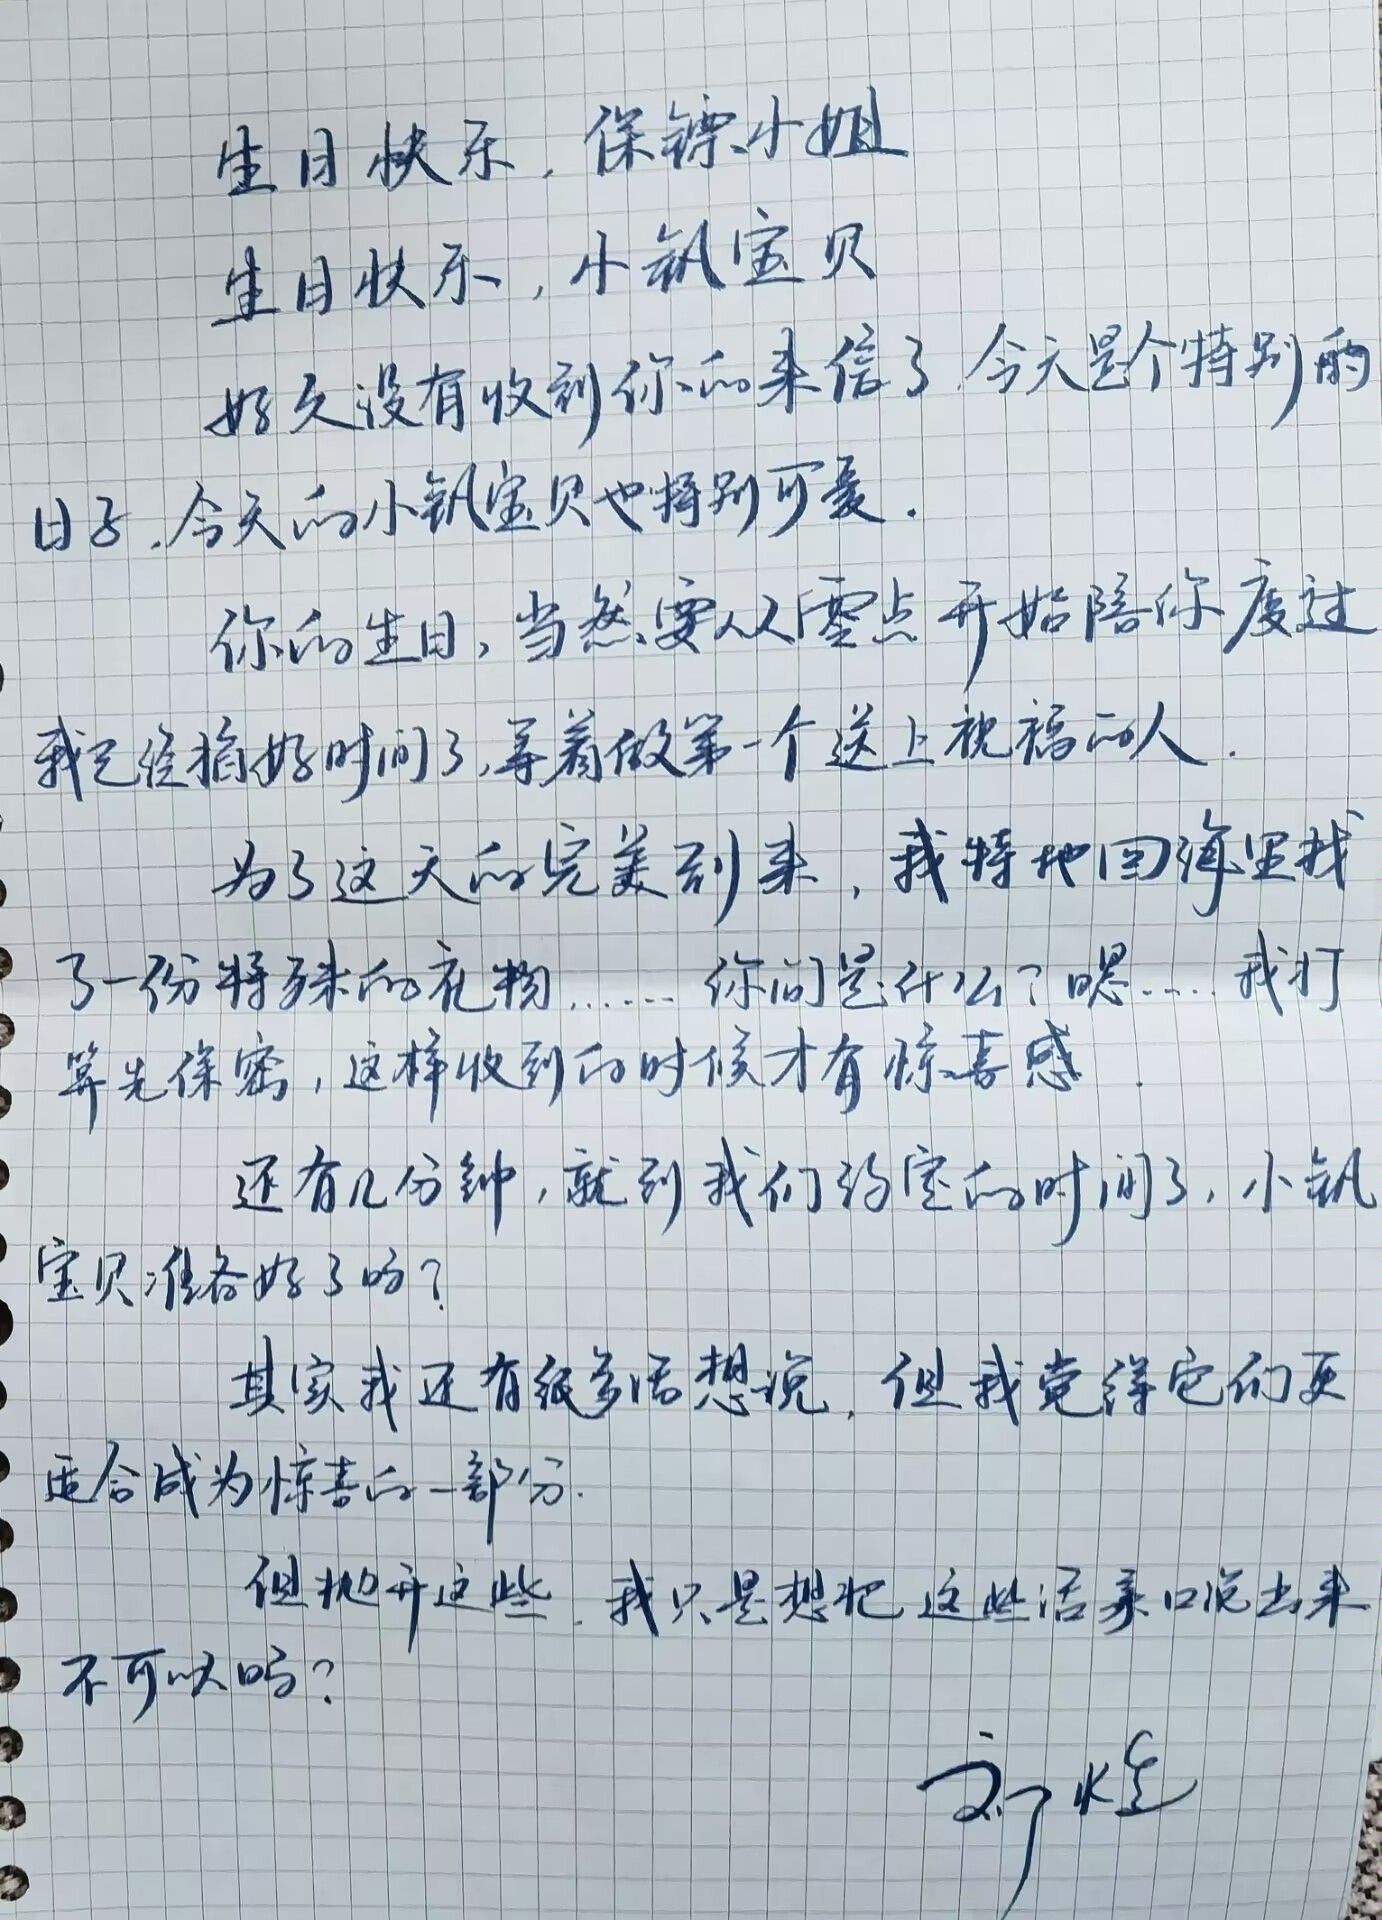 生日快乐，保镖小姐
生日快乐，小钒宝贝
好久没有收到你的来信了，今天是个特别的
日子，今天的小钒宝贝也特别可爱.
你的生日，当然要从零点开始陪你度过
我已经掐好时间了，等着做第一个送上祝福的人.
为了这天的完美到来，我特地回海里找
了一份特殊的礼物……你问是什么？嗯……我打
算先保密，这样收到的时候才有惊喜感.
还有几分钟，就到我们约定的时间了，小钒
宝贝准备好了吗？
其实我还有很多话想说，但我觉得它们更
适合成为惊喜的一部分.
但抛开这些，我只是想把这些话亲口说出来
不可以吗？